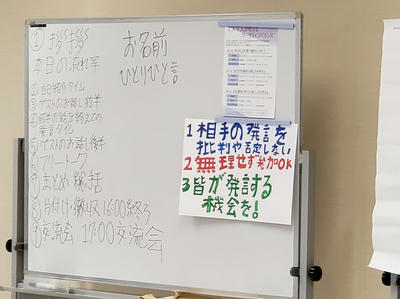 ① 挨拶
本日の流れ等
お名前
ひとりひと言
② 自己紹介タイム
③ ゲストのお話し前半
④ 前半の話を終えての
発言タイム
⑤ ゲストのお話し後半
⑥ フリートーク
⑦ まとめ 総括
⑧ 片付け・振り返り 16:00終了
⑨ 交流会 17:00交流会
1 相手の発言を
批判や否定しない
2 無理せず参加OK
3 皆が発言する
機会を!